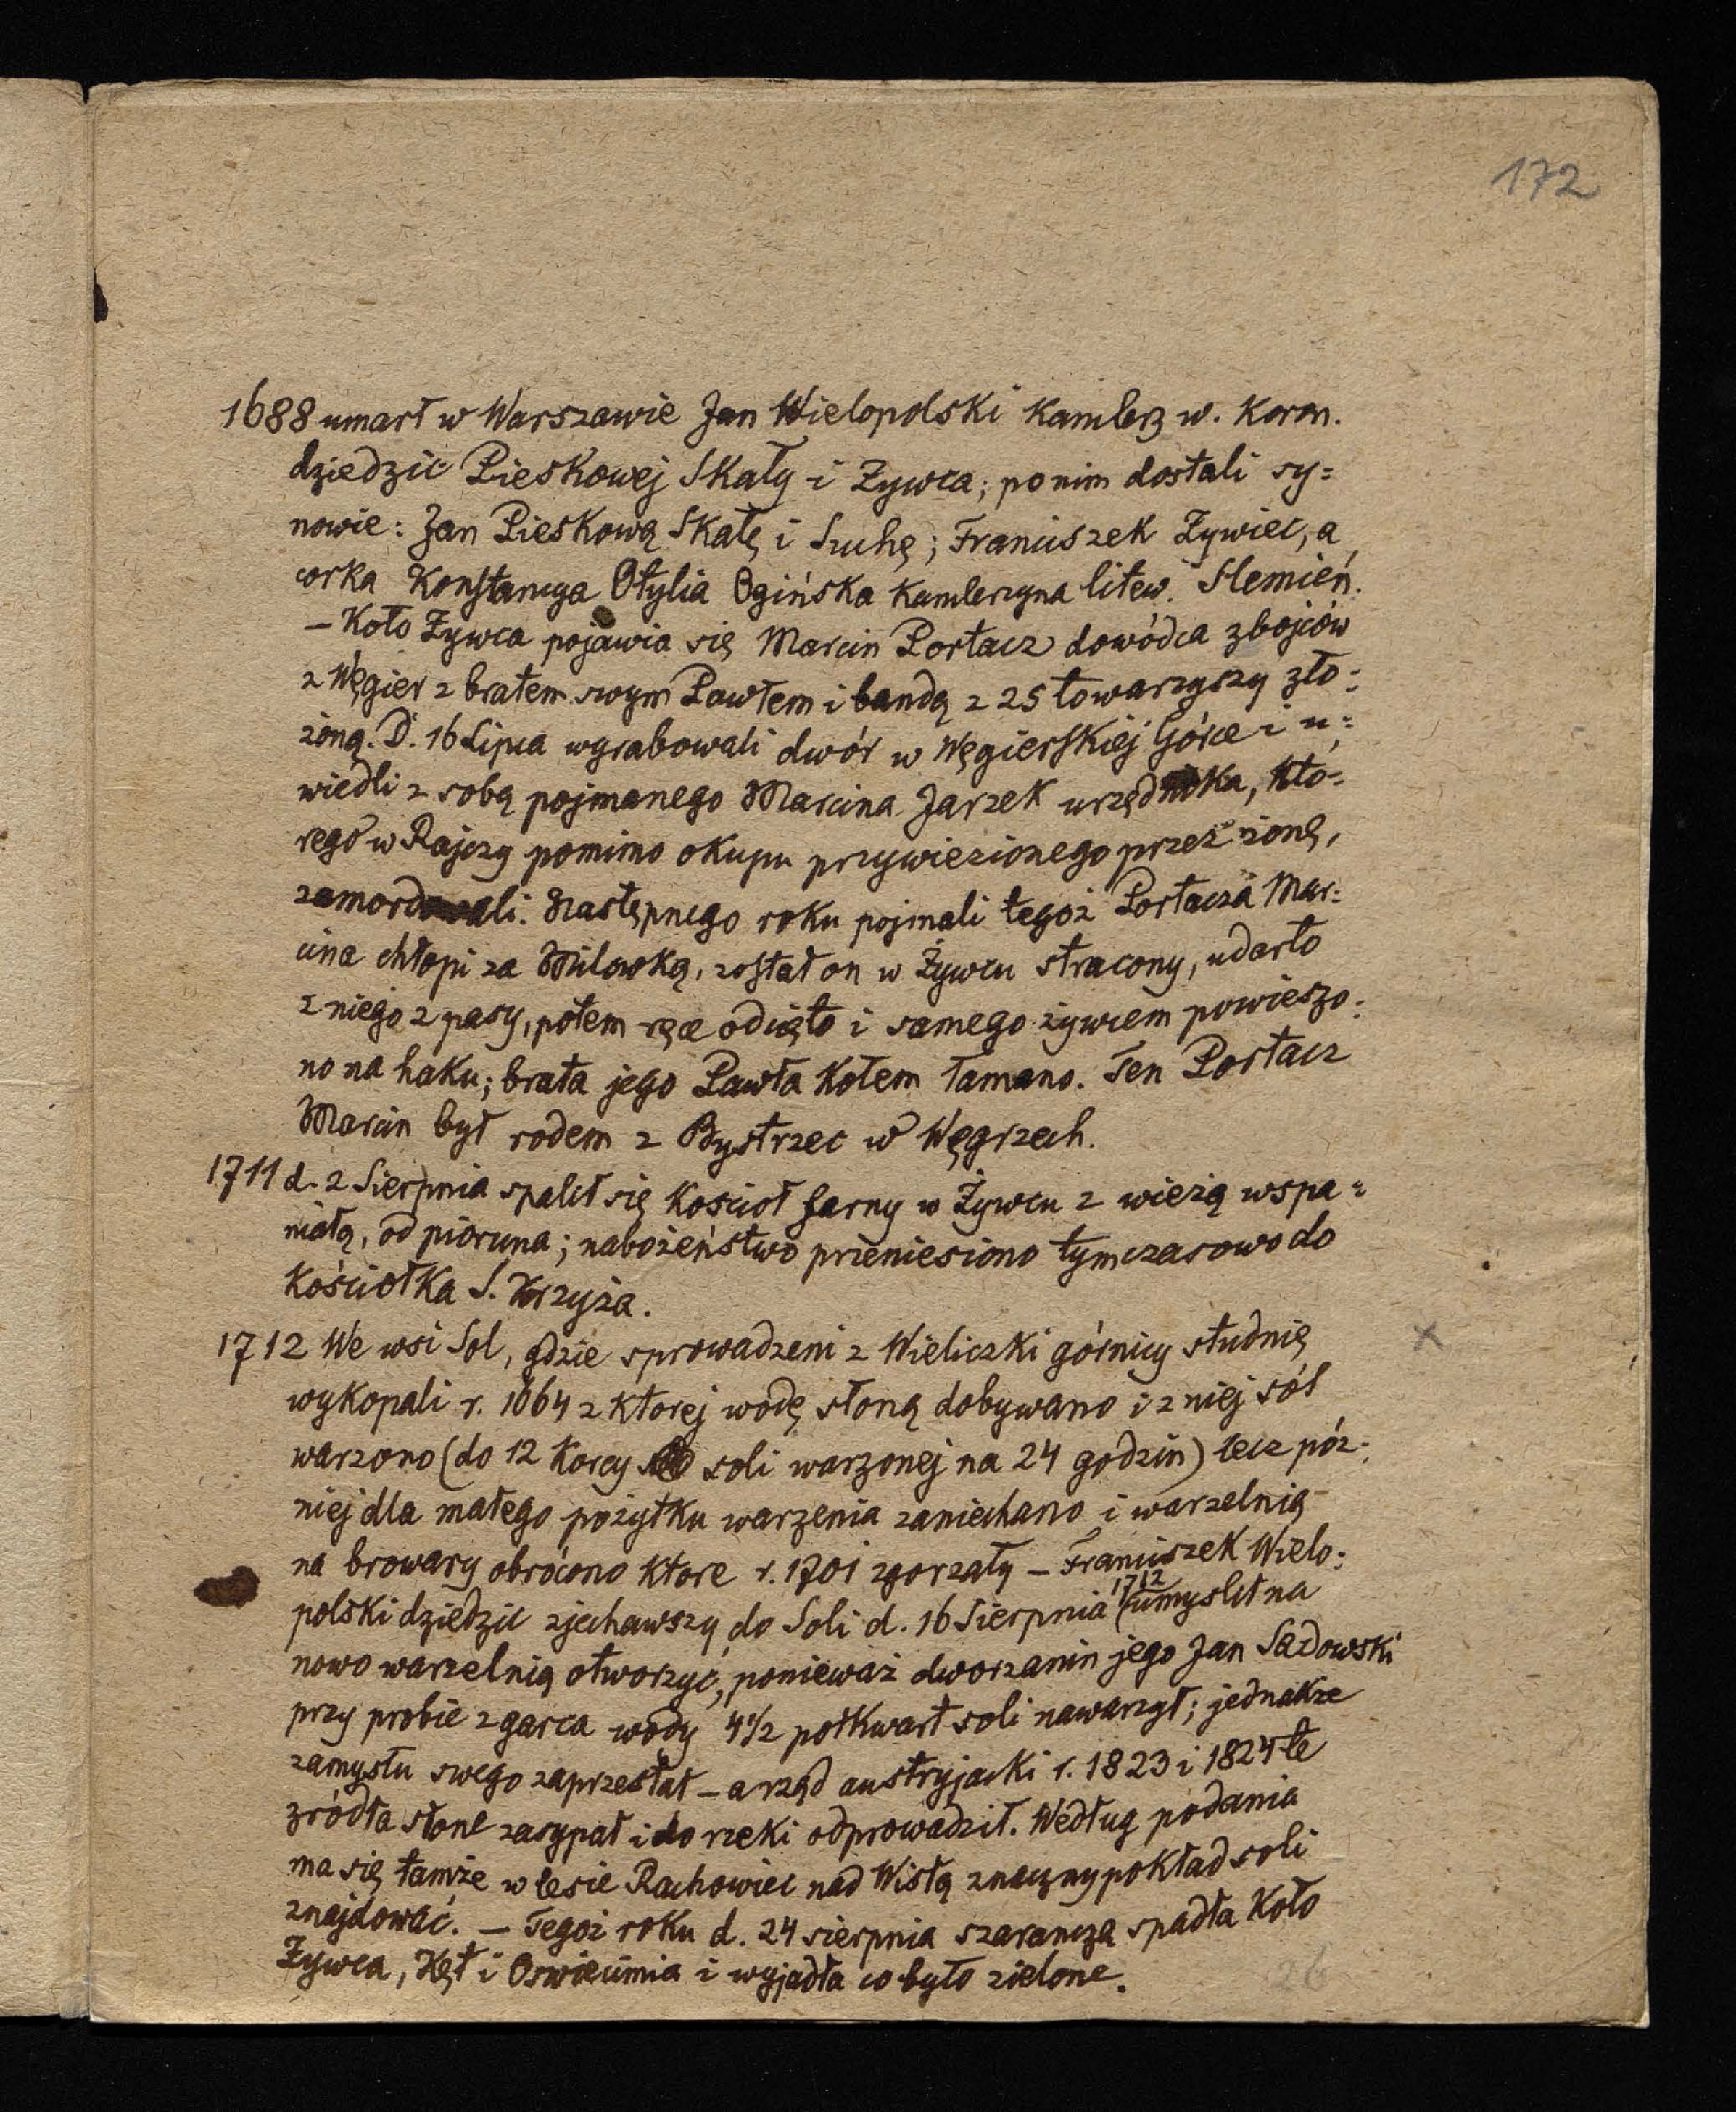 172
1688 umarł w Warszawie Jan Wielopolski Kanclerz w. Koron.
dziedzic Pieskowej Skały i Żywca; po nim dostali sy=
nowie: Jan Pieskową Skałę i Suchę; Franciszek Żywiec, a
corka Konstancya Otylia Ogińska Kanclerzyna litew. Slemień.
– Koło Żywca pojawia się Marcin Portacz dowódca zbojców
z Węgier z bratem swym Pawłem i bandą z 25 towarzyszy zło=
żoną. D. 16 Lipca wyrabowali dwór w Węgierskiej Górce i u=
wiedli z sobą pojmanego Marcina Jarzek urzędnika, kto=
rego w Rajczy pomimo okupu przywiezionego przez żonę,
zamordowali. Następnego roku pojmali tegoż Portacza Mar=
cina chłopi za Milowką, został on w Żywcu stracony, udarto
z niego 2 pasy, potem ręce odcięto i samego żywcem powieszo=
no na haku; brata jego Pawła kołem łamano. Ten Portacz
Marcin był rodem z Bystrzec w Węgrzech.
1711 d. 2 Sierpnia spalił się Kościoł farny w Żywcu z wieżą wspa=
niałą, od pioruna; nabożeństwo przeniesiono tymczasowo do
Kościołka S. Krzyża.
1712 We wsi Sol, gdzie sprowadzeni z Wieliczki górnicy studnię
wykopali r. 1664 z ktorej wodę słoną dobywano i z niej sól
warzono (do 12 Korcy soli warzonej na 24 godzin) lecz póz=
niej dla małego pożytku warzenia zaniechano i warzelnią
na browary obrócono ktore r. 1701 zgorzały – Franciszek Wielo=
polski dziedzic zjechawszy do Soli d. 16 Sierpnia 1712 umyslił na
nowo warzelnią otworzyć, ponieważ dworzanin jego Jan Sadowski
przy probie z garca wody 4 1/2 połkwart soli nawarzył; jednakże
zamysłu swego zaprzestał – a rząd austryjacki r. 1823 i 1824 te
zródła słone zasypał i do rzeki odprowadził. Według podania
ma się tamże w lesie Rachowiec nad Wisłą znaczny pokład soli
znajdować. – Tegoż roku d. 24 sierpnia szarancza spadła koło
Żywca, Kęt i Oswiecimia i wyjadła co było zielone.
26